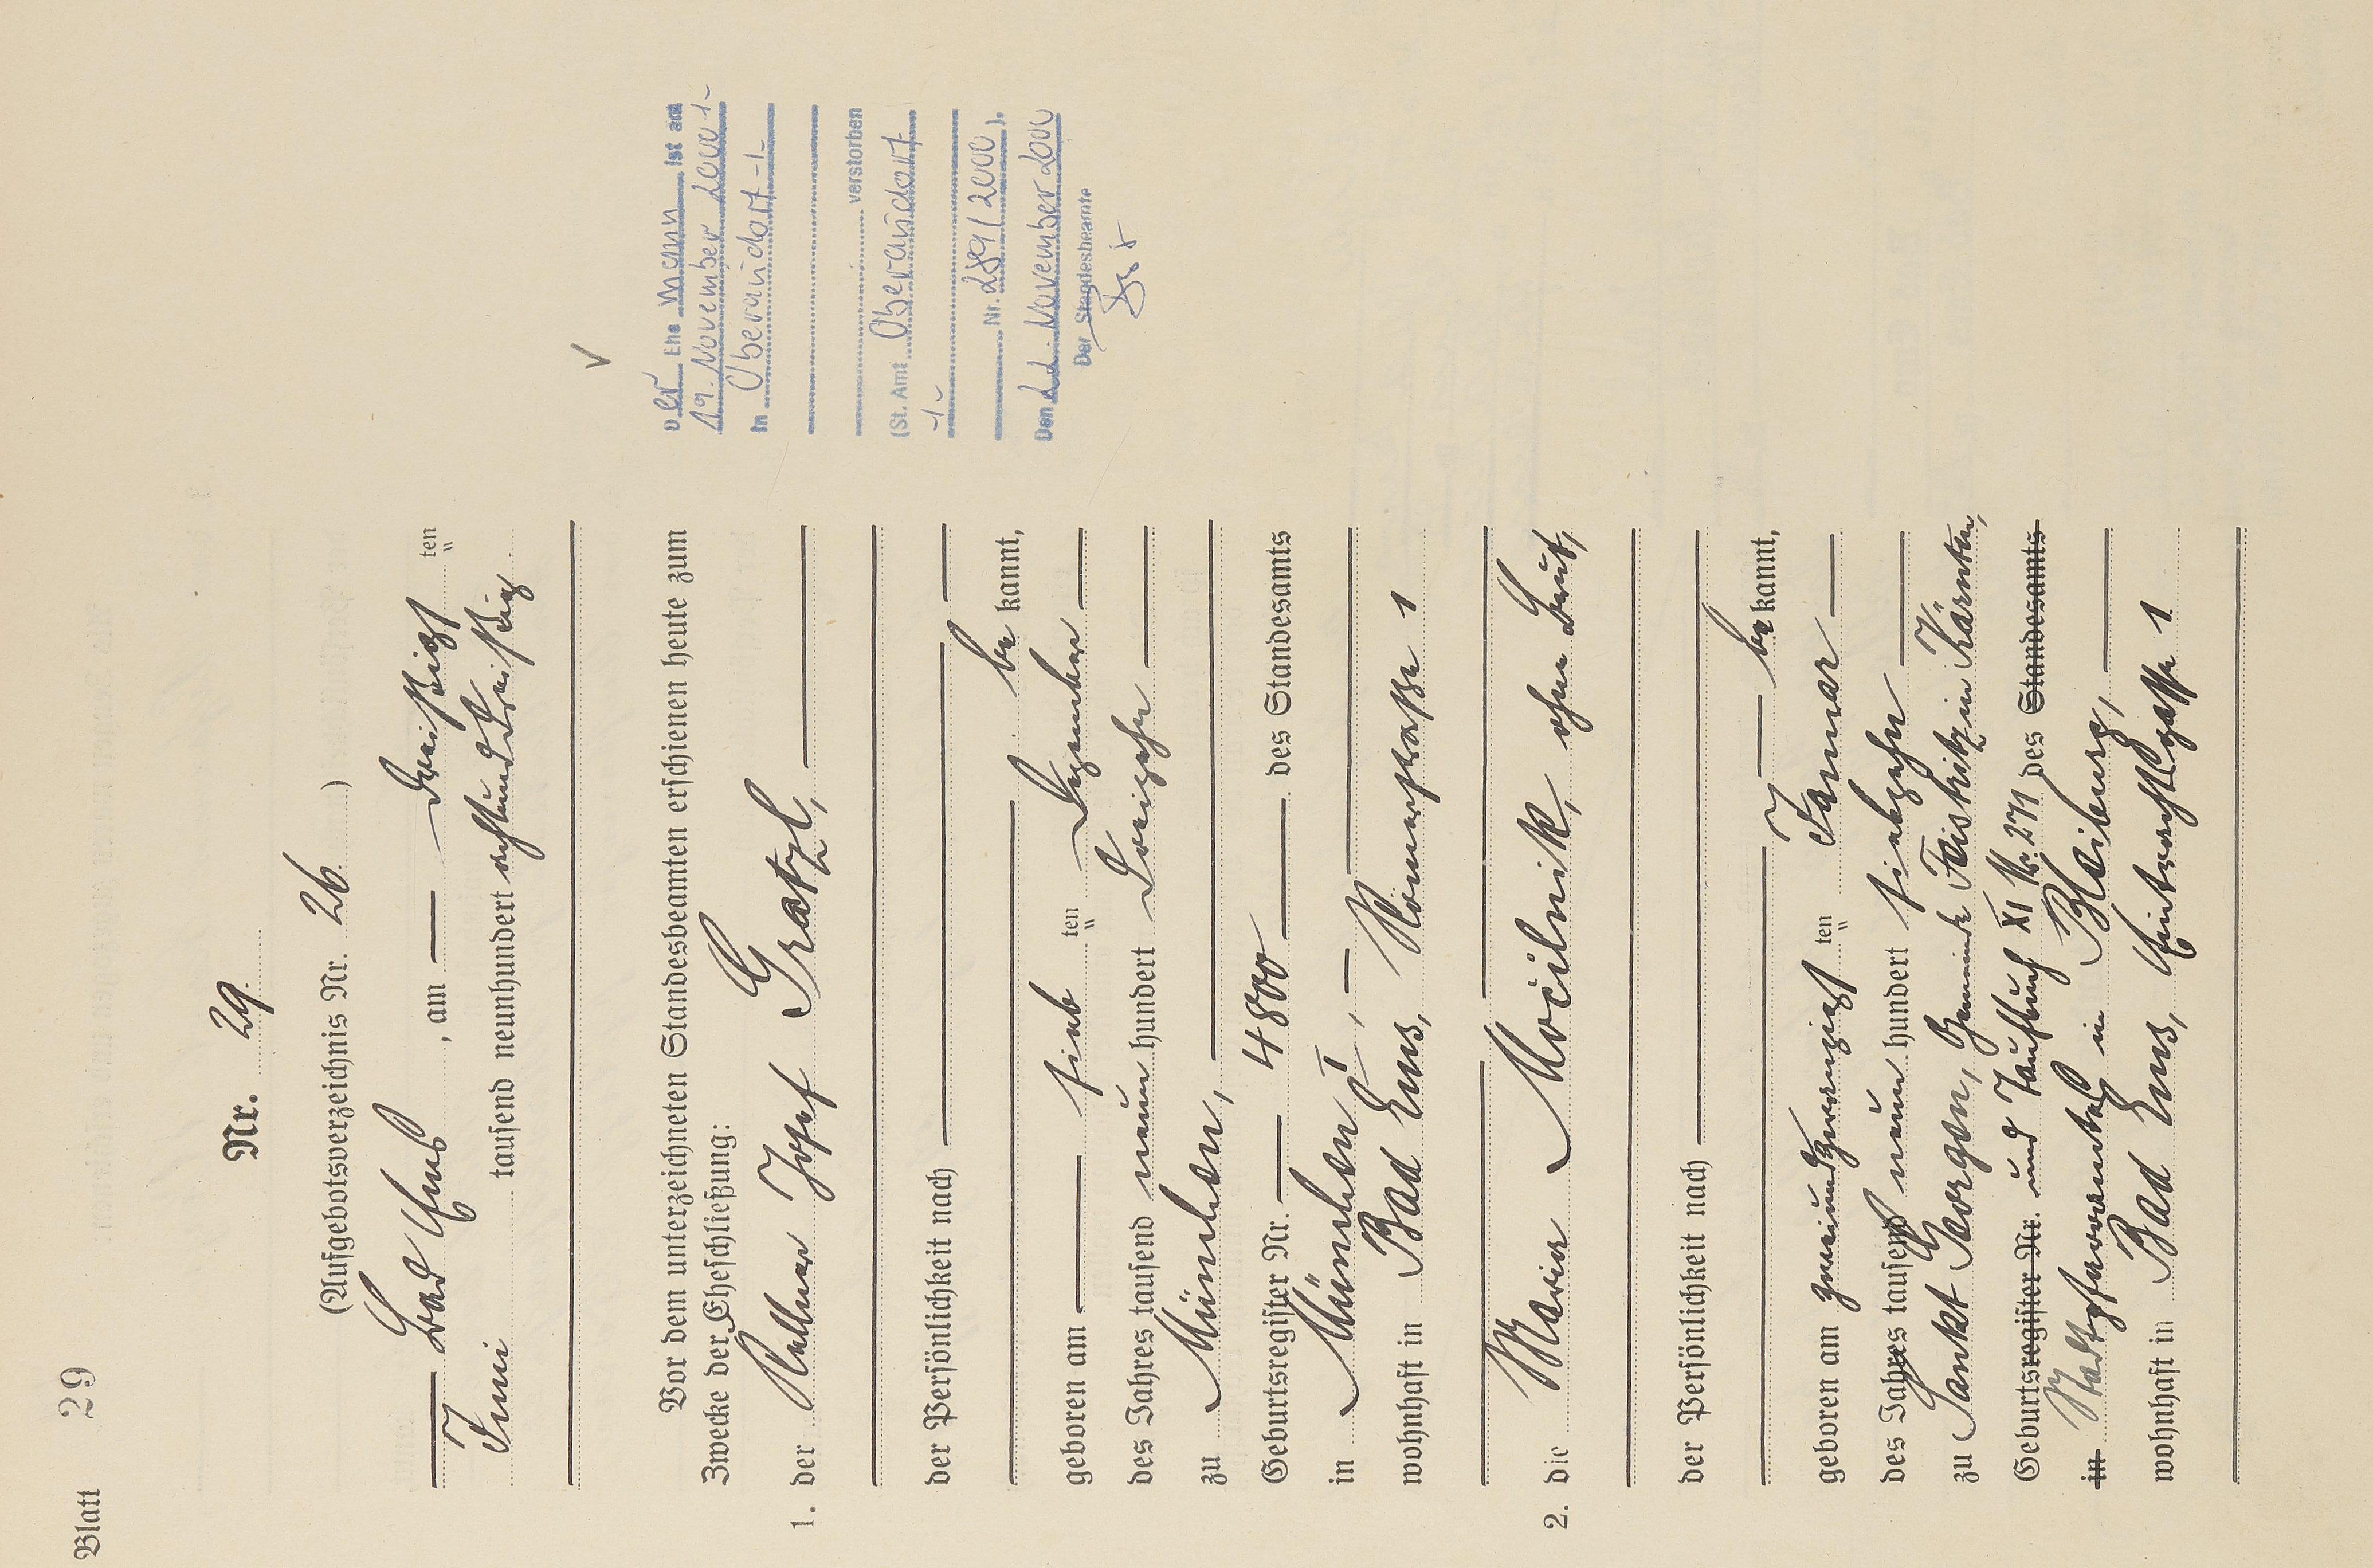 Blatt 29
Nr. 29.
(Aufgebotsverzeichnis Nr. 26.)
Bad Ems, am dreißigst ten
Juni tausend neunhundert achtunddreißig.
Vor dem unterzeichneten Standesbeamten erschienen heute zum
Zwecke der Eheschließung:
1. der Josef Gratzl,
der Persönlichkeit nach
be kannt,
geboren am sieb ten Dezember
des Jahres tausend neun hundert dreizehn
zu München,
Geburtsregister Nr. 4800 des Standesamts
in München I,
wohnhaft in Bad Ems, Römerstraße 1
2. die Maria Močilnik, ohne Beruf,
der Persönlichkeit nach
be kannt,
geboren am zweiundzwanzigst ten Januar
des Jahres tausend neun hundert siebzehn
zu Sankt Georgen, Gemeinde Feistritz in Kärnten,
Geburtsregister Nr. und Taufbuch XI Nr. 271 des Standesamts
in Stadtpfarramtes in Bleiburg,
wohnhaft in Bad Ems, Eintrachtsgasse 1
Der Ehe mann ist am
19. November 2000 -/-
in Oberaudorf -/-
verstorben
(St. Amt Oberaudorf
-/-
Nr. 289/2000).
Den 22. November 2000
Der Standesbeamte